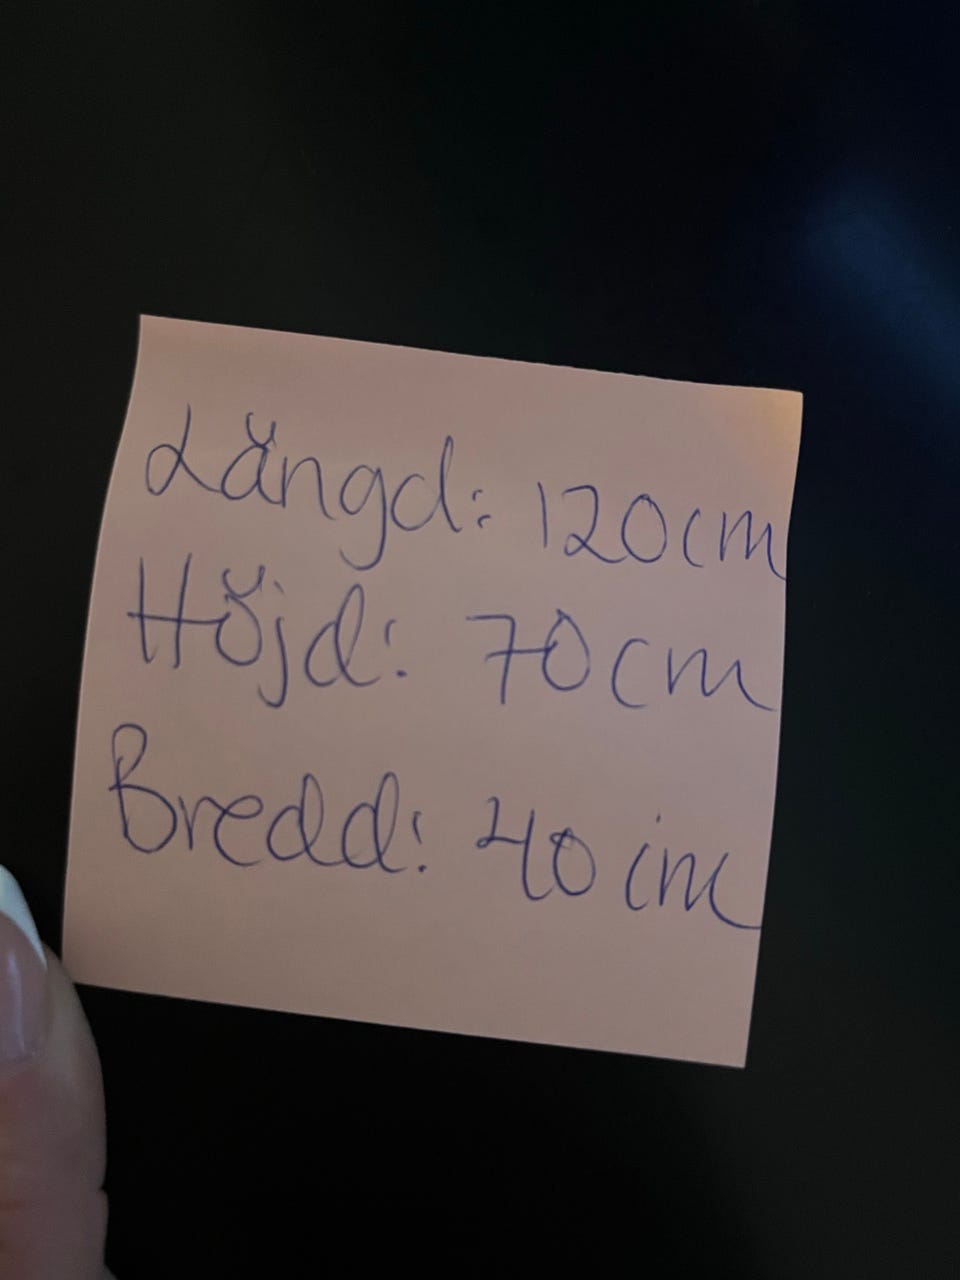 Längd: 120cm
Höjd: 70cm
Bredd: 40 cm